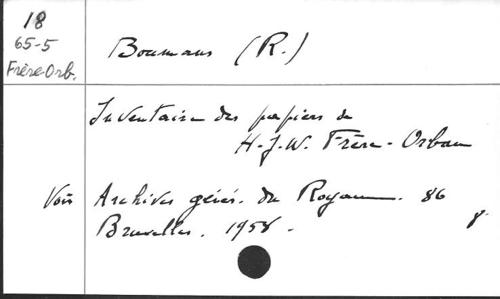 18
65-5
Frère-Orb.
Boumans (R.)
Inventaire des papiers de
H.-J.-W. Frère-Orban
Voir Archives génér. du Royaume. 86
Bruxelles. 1958.
8.